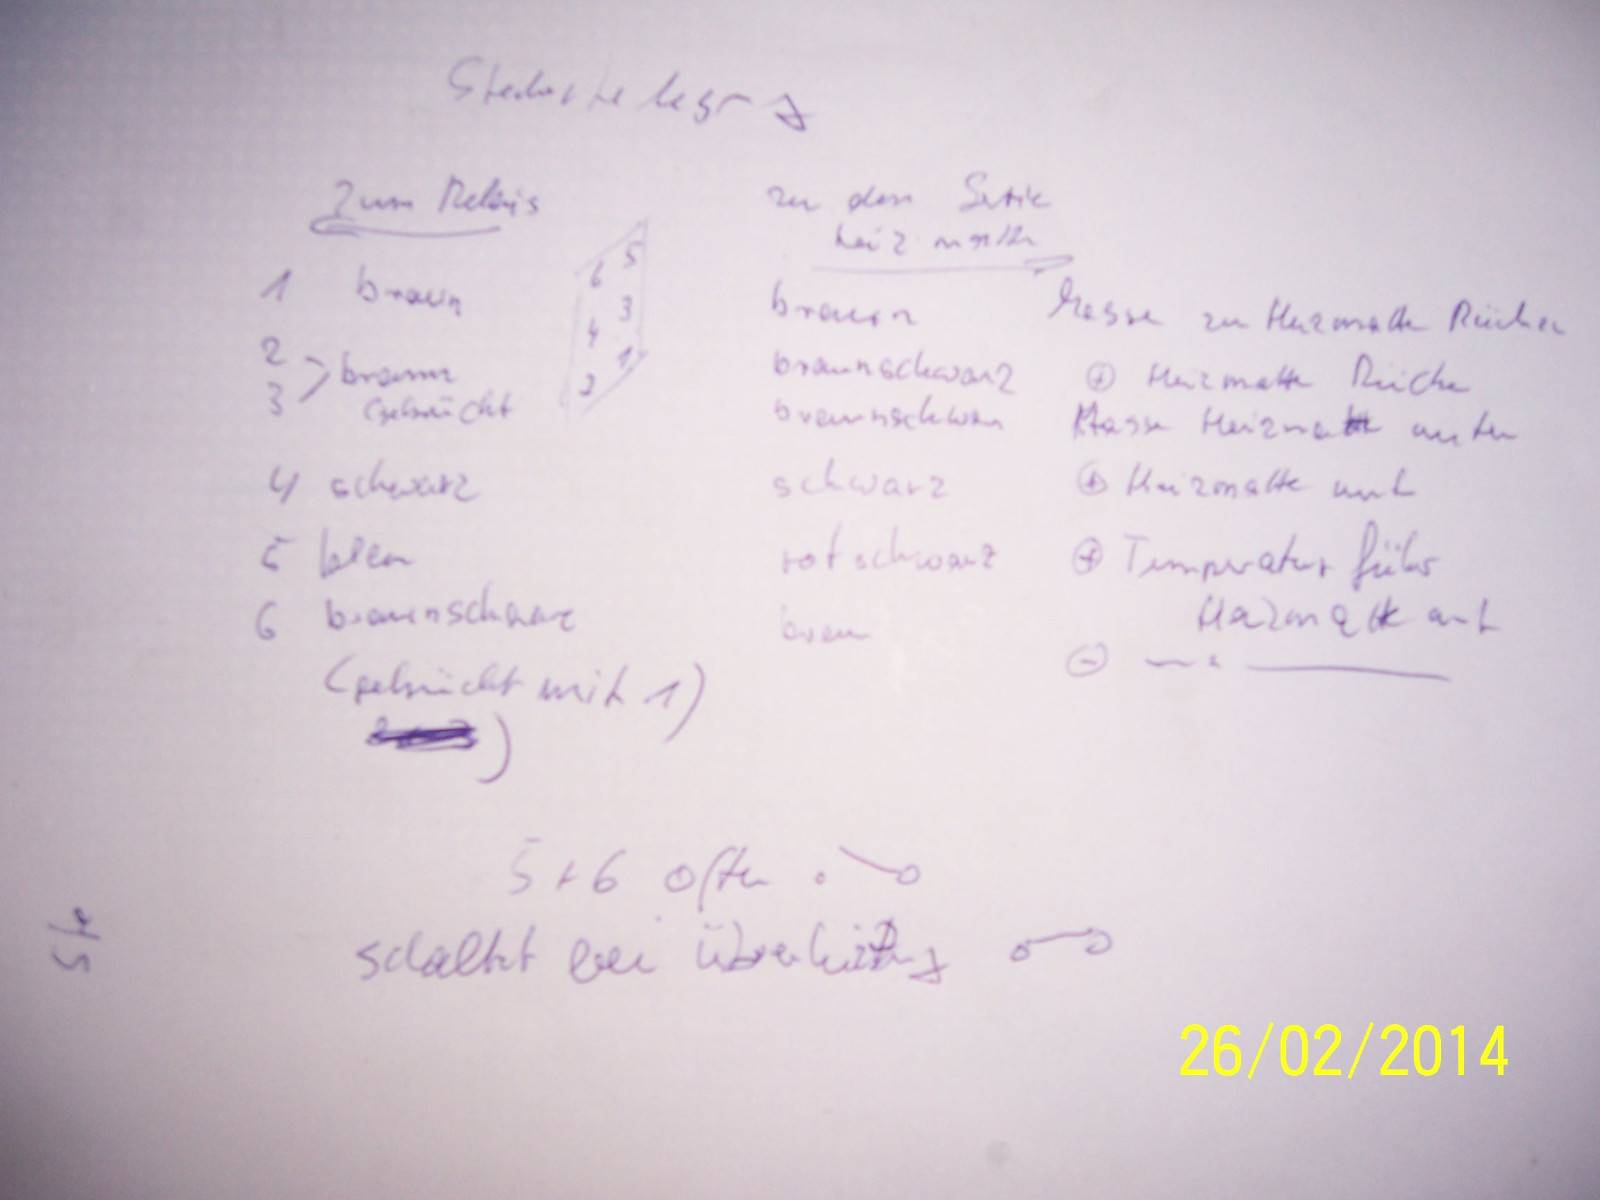 Steckerbelegung
Zum Relais
zu den Serie
heizmatte
6 5
4 3
2 1
1 braun braun Masse zu Heizmatte Rücken
2 braun braunschwarz + Heizmatte Rücke
3 gebrückt braunschwarz Masse Heizmatte unten
4 schwarz schwarz + Heizmatte unt
5 blau rotschwarz + Temperatur fühler
Heizmatte unt
6 braunschwarz braun -
(gebrückt mit 1)
5+6 offen
schaltet bei Überhitzung
26/02/2014